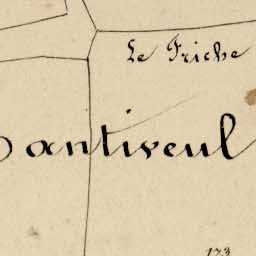 Le Friche
antiveul
173